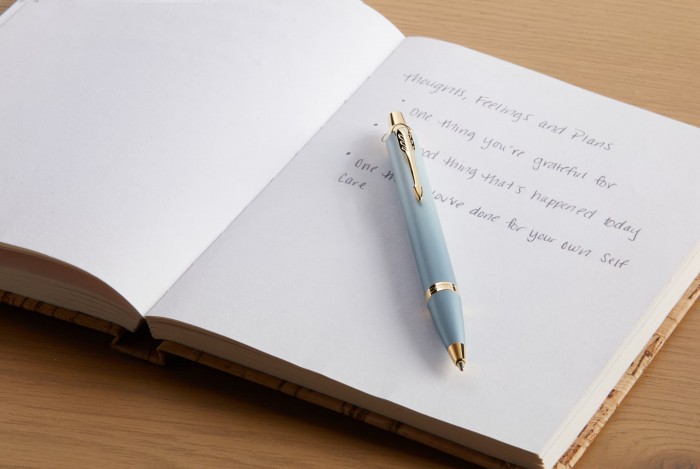 Thoughts, Feelings and Plans
• One thing you're grateful for
• good thing that's happened today
• One you've done for your own self
care